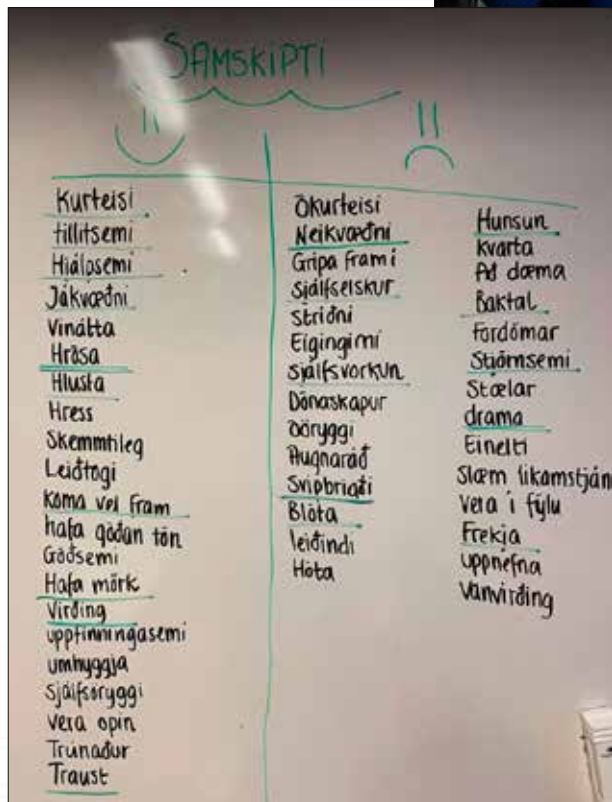 SAMSKIPTI
Kurteisi
tillitsemi
Hjálpsemi
Jákvæðni
Vinátta
Hrósa
Hlusta
Hress
Skemmtileg
Leiðtogi
Koma vel fram
hafa góðan tón
Góðsemi
Hafa mörk
Virðing
uppfinningasemi
umhyggja
sjálfsöryggi
vera opin
Trúnaður
Traust
Ókurteisi
Neikvæðni
Grípa frammí
Sjálfselskur
Stríðni
Eigingirni
sjálfsvorkun
Dónaskapur
Óöryggi
Augnaráð
Svipbrigði
Blóta
leiðindi
Hóta
Hunsun
kvarta
Að dæma
Baktal
Fordómar
Stjórnsemi
Stælar
drama
Einelti
Slæm líkamstján
Vera í fýlu
Frekja
uppnefna
Vanvirðing